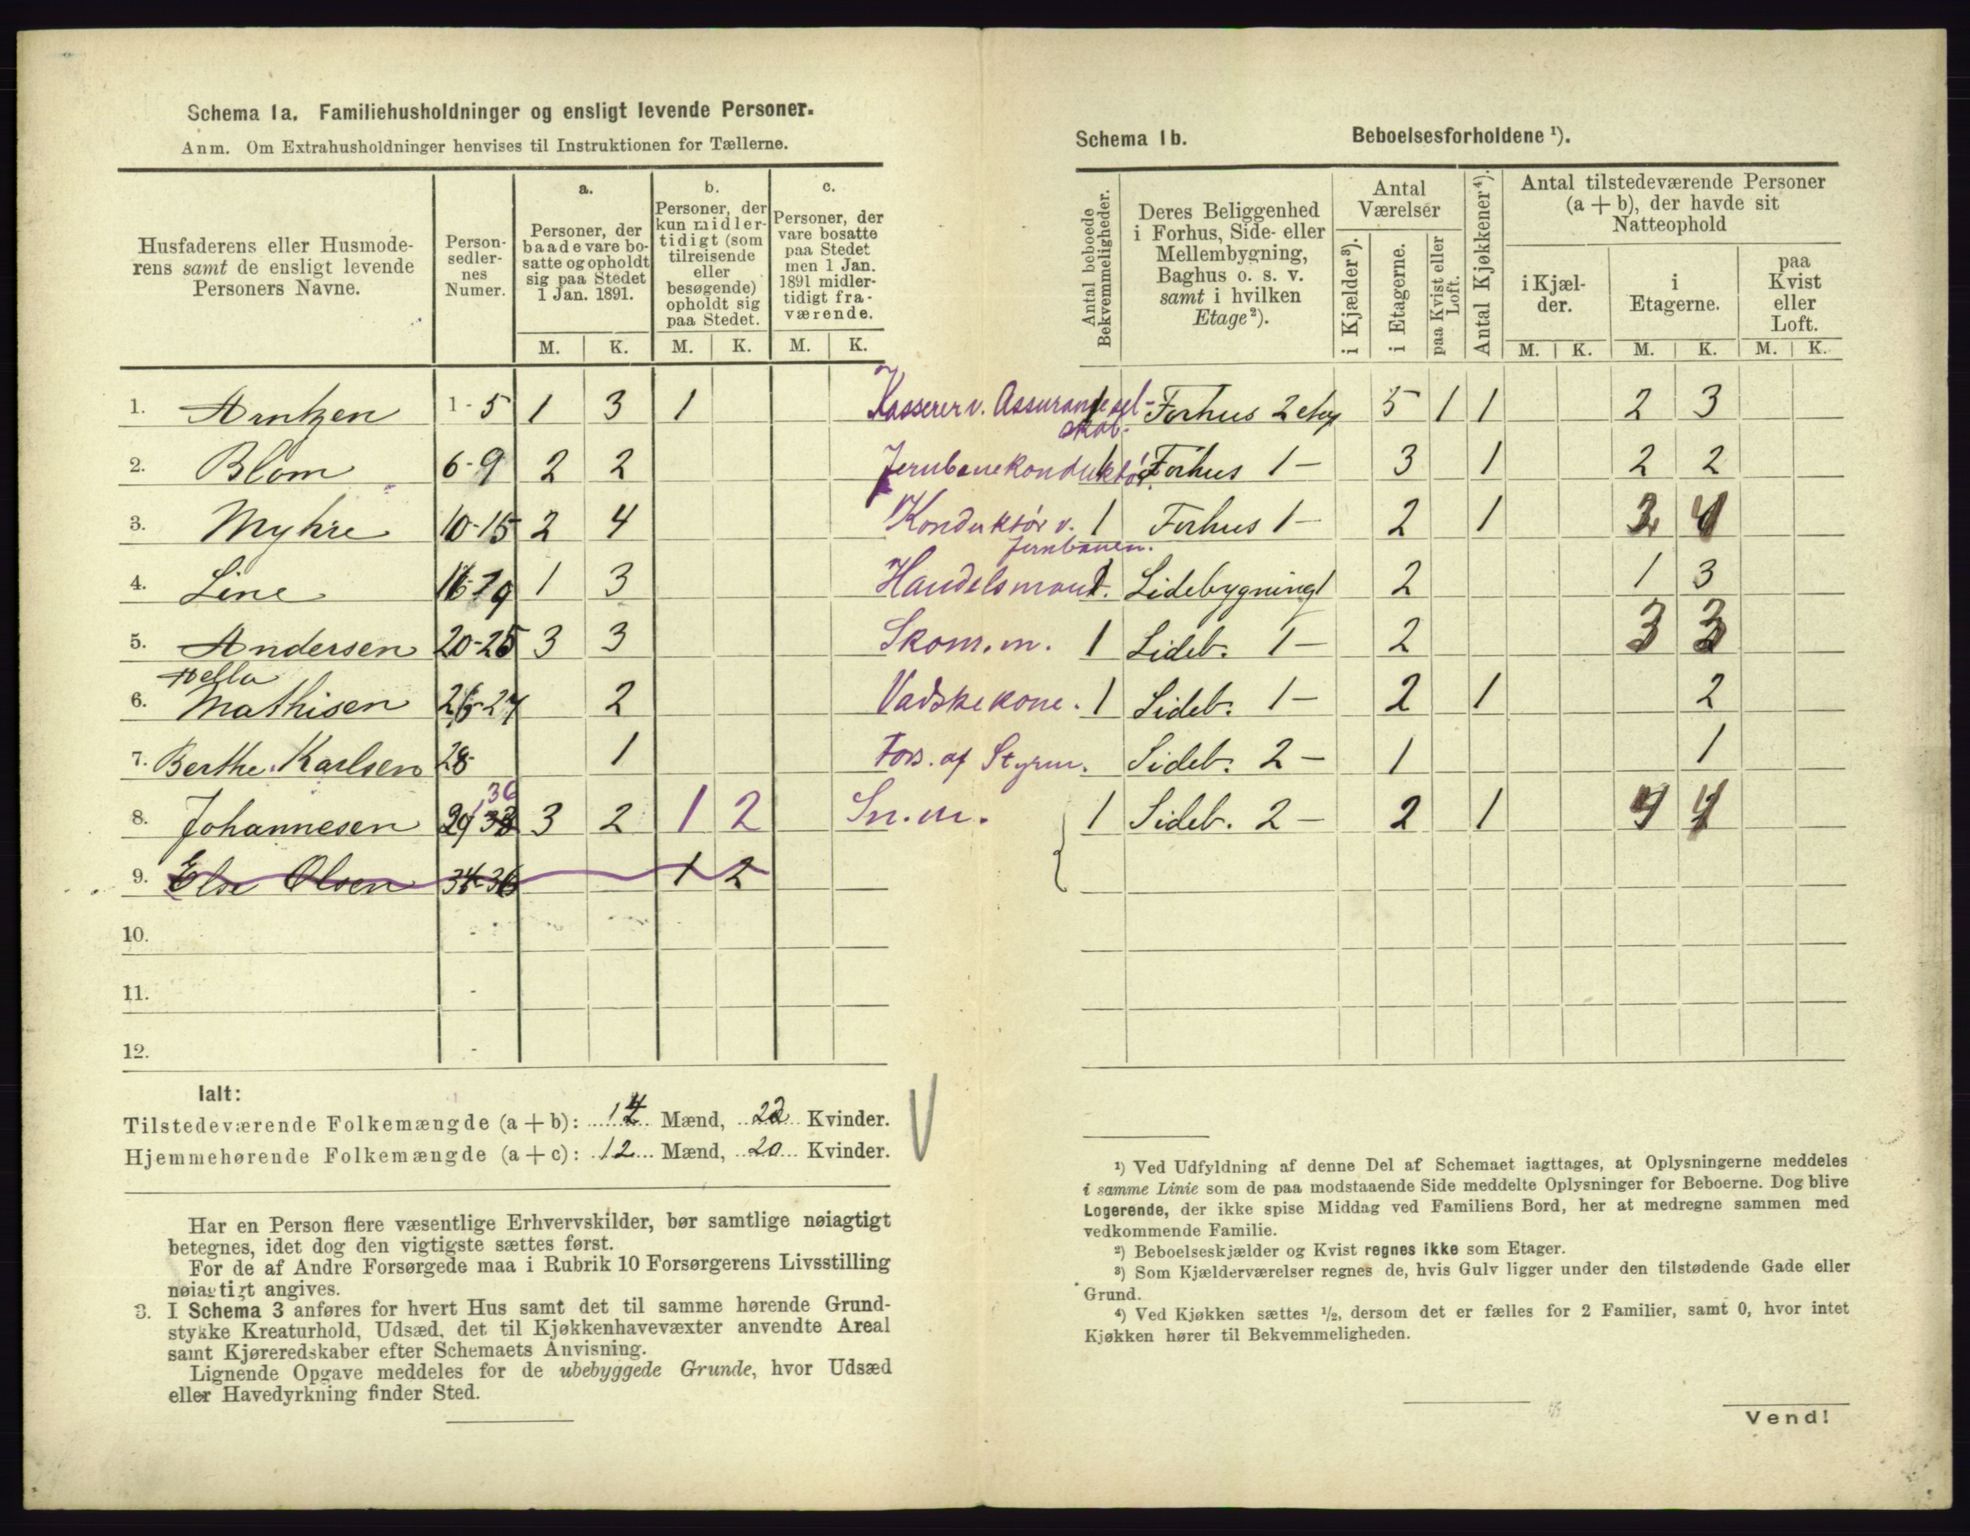 Schema 1a. Familiehusholdninger og ensligt levende Personer.
Anm. Om Extrahusholdninger henvises til Instruktionen for Tællerne.
Husfaderens eller Husmode-
rens samt de ensligt levende
Personers Navne.
Person-
sedler-
nes
Numer.
a.
Personer, der
baade vare bo-
satte og opholdt
sig paa Stedet
1 Jan. 1891.
b.
Personer, der
kun midler-
tidigt (som
tilreisende
eller
besøgende)
opholdt sig
paa Stedet.
c.
Personer, der
vare bosatte
paa Stedet
men 1 Jan.
1891 midler-
tidigt fra-
værende.
M. K. M. K. M. K.
1. Arntzen 1-5 1 3 1 Kasserer v. Assurancesel-
skab.
2. Blom 6-9 2 2 Jernbanekonduktør
3. Myhre 10-15 2 4 Konduktør v.
Jernbanen.
4. Line 16-19 1 3 Handelsmand.
5. Andersen 20-25 3 3 Skom.m.
6. Mathisen 26-27 2 Vadskekone.
7. Berthe Karlsen 28 1 Fors. af Styrm.
8. Johannesen 29-36 3 2 1 2 Sn.m.
9. Else Olsen 34-36 1 2
10.
11.
12.
Ialt:
Tilstedeværende Folkemængde (a+b): 14 Mænd, 22 Kvinder.
Hjemmehørende Folkemængde (a+c): 12 Mænd, 20 Kvinder.
Har en Person flere væsentlige Erhvervskilder, bør samtlige nøiagtigt
betegnes, idet dog den vigtigste sættes først.
For de af Andre Forsørgede maa i Rubrik 10 Forsørgerens Livsstilling
nøiagtigt angives.
3. I Schema 3 anføres for hvert Hus samt det til samme hørende Grund-
stykke Kreaturhold, Udsæd, det til Kjøkkenhavevæxter anvendte Areal
samt Kjøreredskaber efter Schemaets Anvisning.
Lignende Opgave meddeles for de ubebyggede Grunde, hvor Udsæd
eller Havedyrkning finder Sted.
Schema 1b. Beboelsesforholdene ¹).
Antal beboede
Bekvemmeligheder.
Deres Beliggenhed
i Forhus, Side- eller
Mellembygning,
Baghus o. s. v.
samt i hvilken
Etage²).
Antal
Værelser
i Kjælder³).
i Etagerne.
paa Kvist eller
Loft.
Antal Kjøkkener⁴).
Antal tilstedeværende Personer
(a + b), der havde sit
Natteophold
i Kjæl-
der.
i
Etagerne.
paa
Kvist
eller
Loft.
M. K. M. K. M. K.
1 Forhus 2 etg 5 1 1 2 3
1 Forhus 1 – 3 1 2 2
1 Forhus 1 – 2 1 2 4
1 Sidebygning 1 2 1 3
1 Sideb. 1 – 2 3 3
1 Sideb. 1 – 2 1 2
Sideb. 2 – 1 1
1 Sideb. 2 – 2 1 4 4
¹) Ved Udfyldning af denne Del af Schemaet iagttages, at Oplysningerne meddeles
i samme Linie som de paa modstaaende Side meddelte Oplysninger for Beboerne. Dog blive
Logerende, der ikke spise Middag ved Familiens Bord, her at medregne sammen med
vedkommende Familie.
²) Beboelseskjælder og Kvist regnes ikke som Etager.
³) Som Kjælderværelser regnes de, hvis Gulv ligger under den tilstødende Gade eller
Grund.
⁴) Ved Kjøkken sættes ¹/₂, dersom det er fælles for 2 Familier, samt 0, hvor intet
Kjøkken hører til Bekvemmeligheden.
Vend!